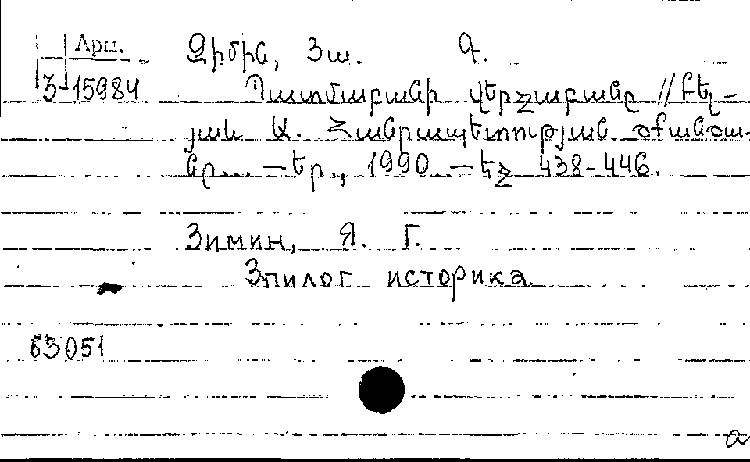 Арм.
3-15984
Զիմին, Յա. Գ.
Պատմաբանի վերջաբանը // Բել-
յան Ա. Հանրապետության օժանդա-
կը... – Եր., 1990. – Եջ 438-446.
Зимин, Я. Г.
Эпилог историка
63051
а